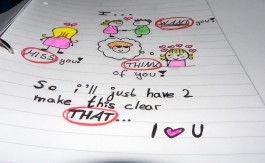 I...
MISS you!
WANT you!
THINK
of you!
So i'll just have 2
make this clear
THAT...
I ♥ U